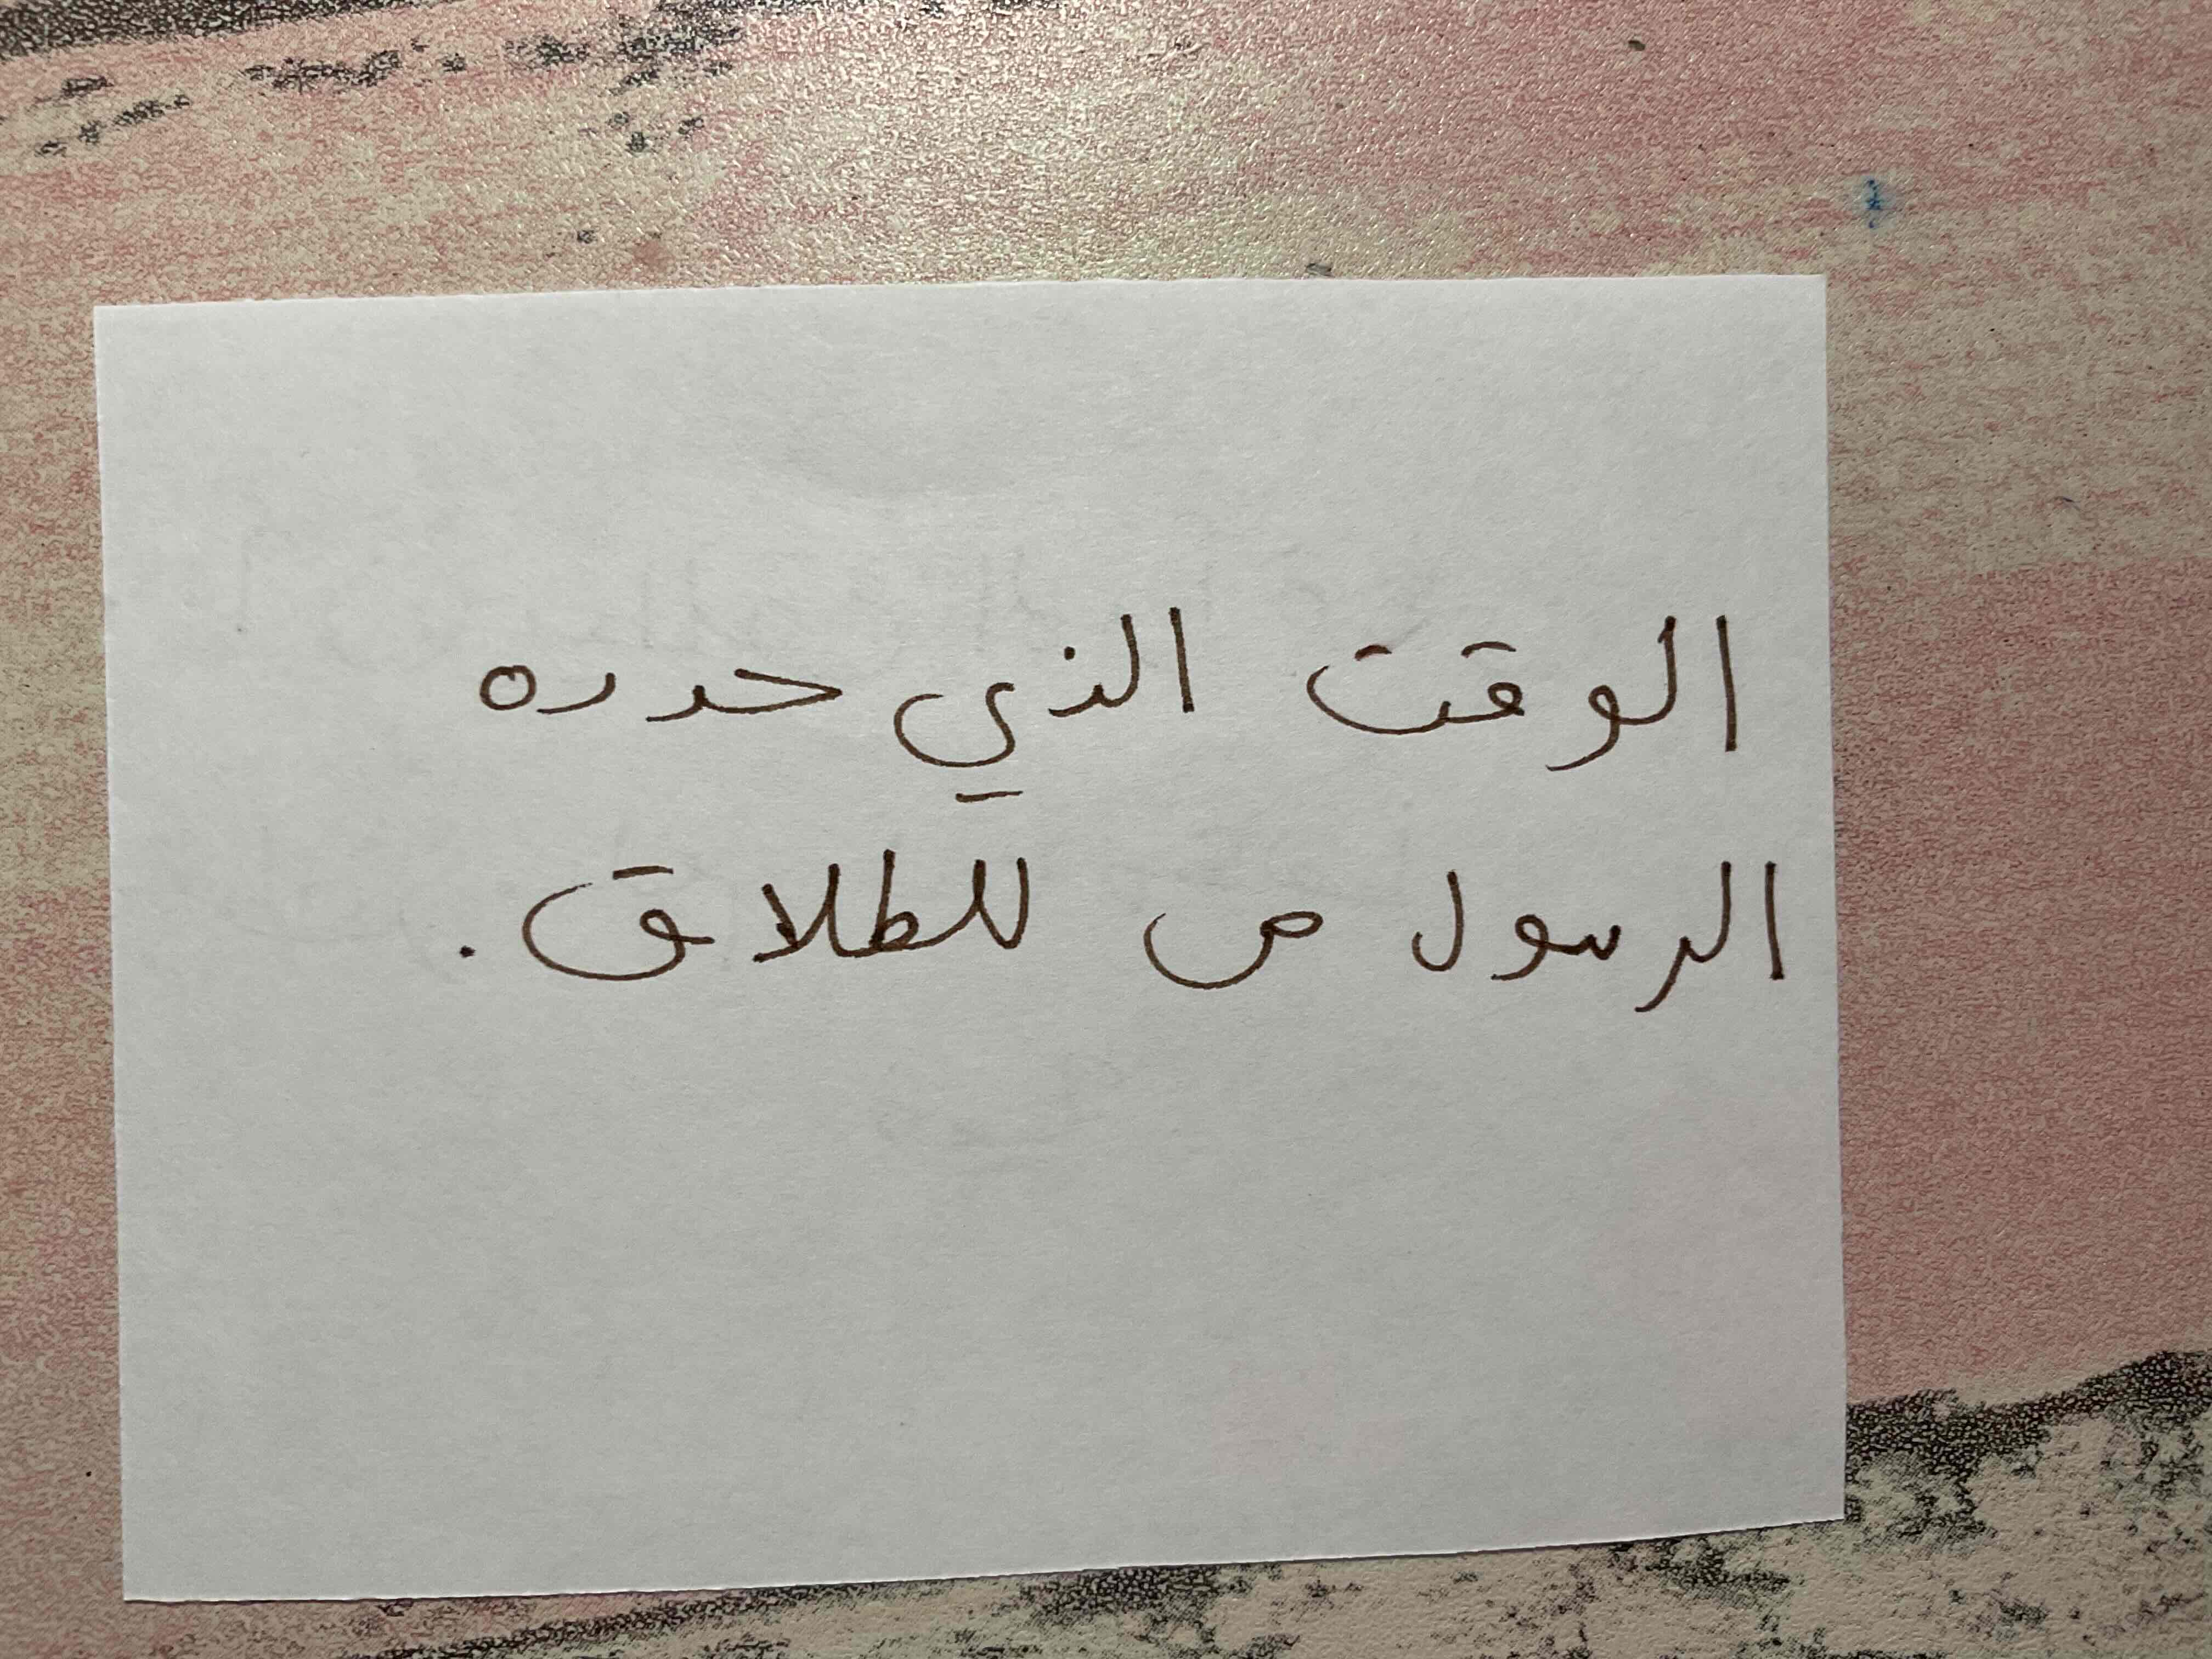 الوقت الذي حدده
الرسول ص للطلاق.